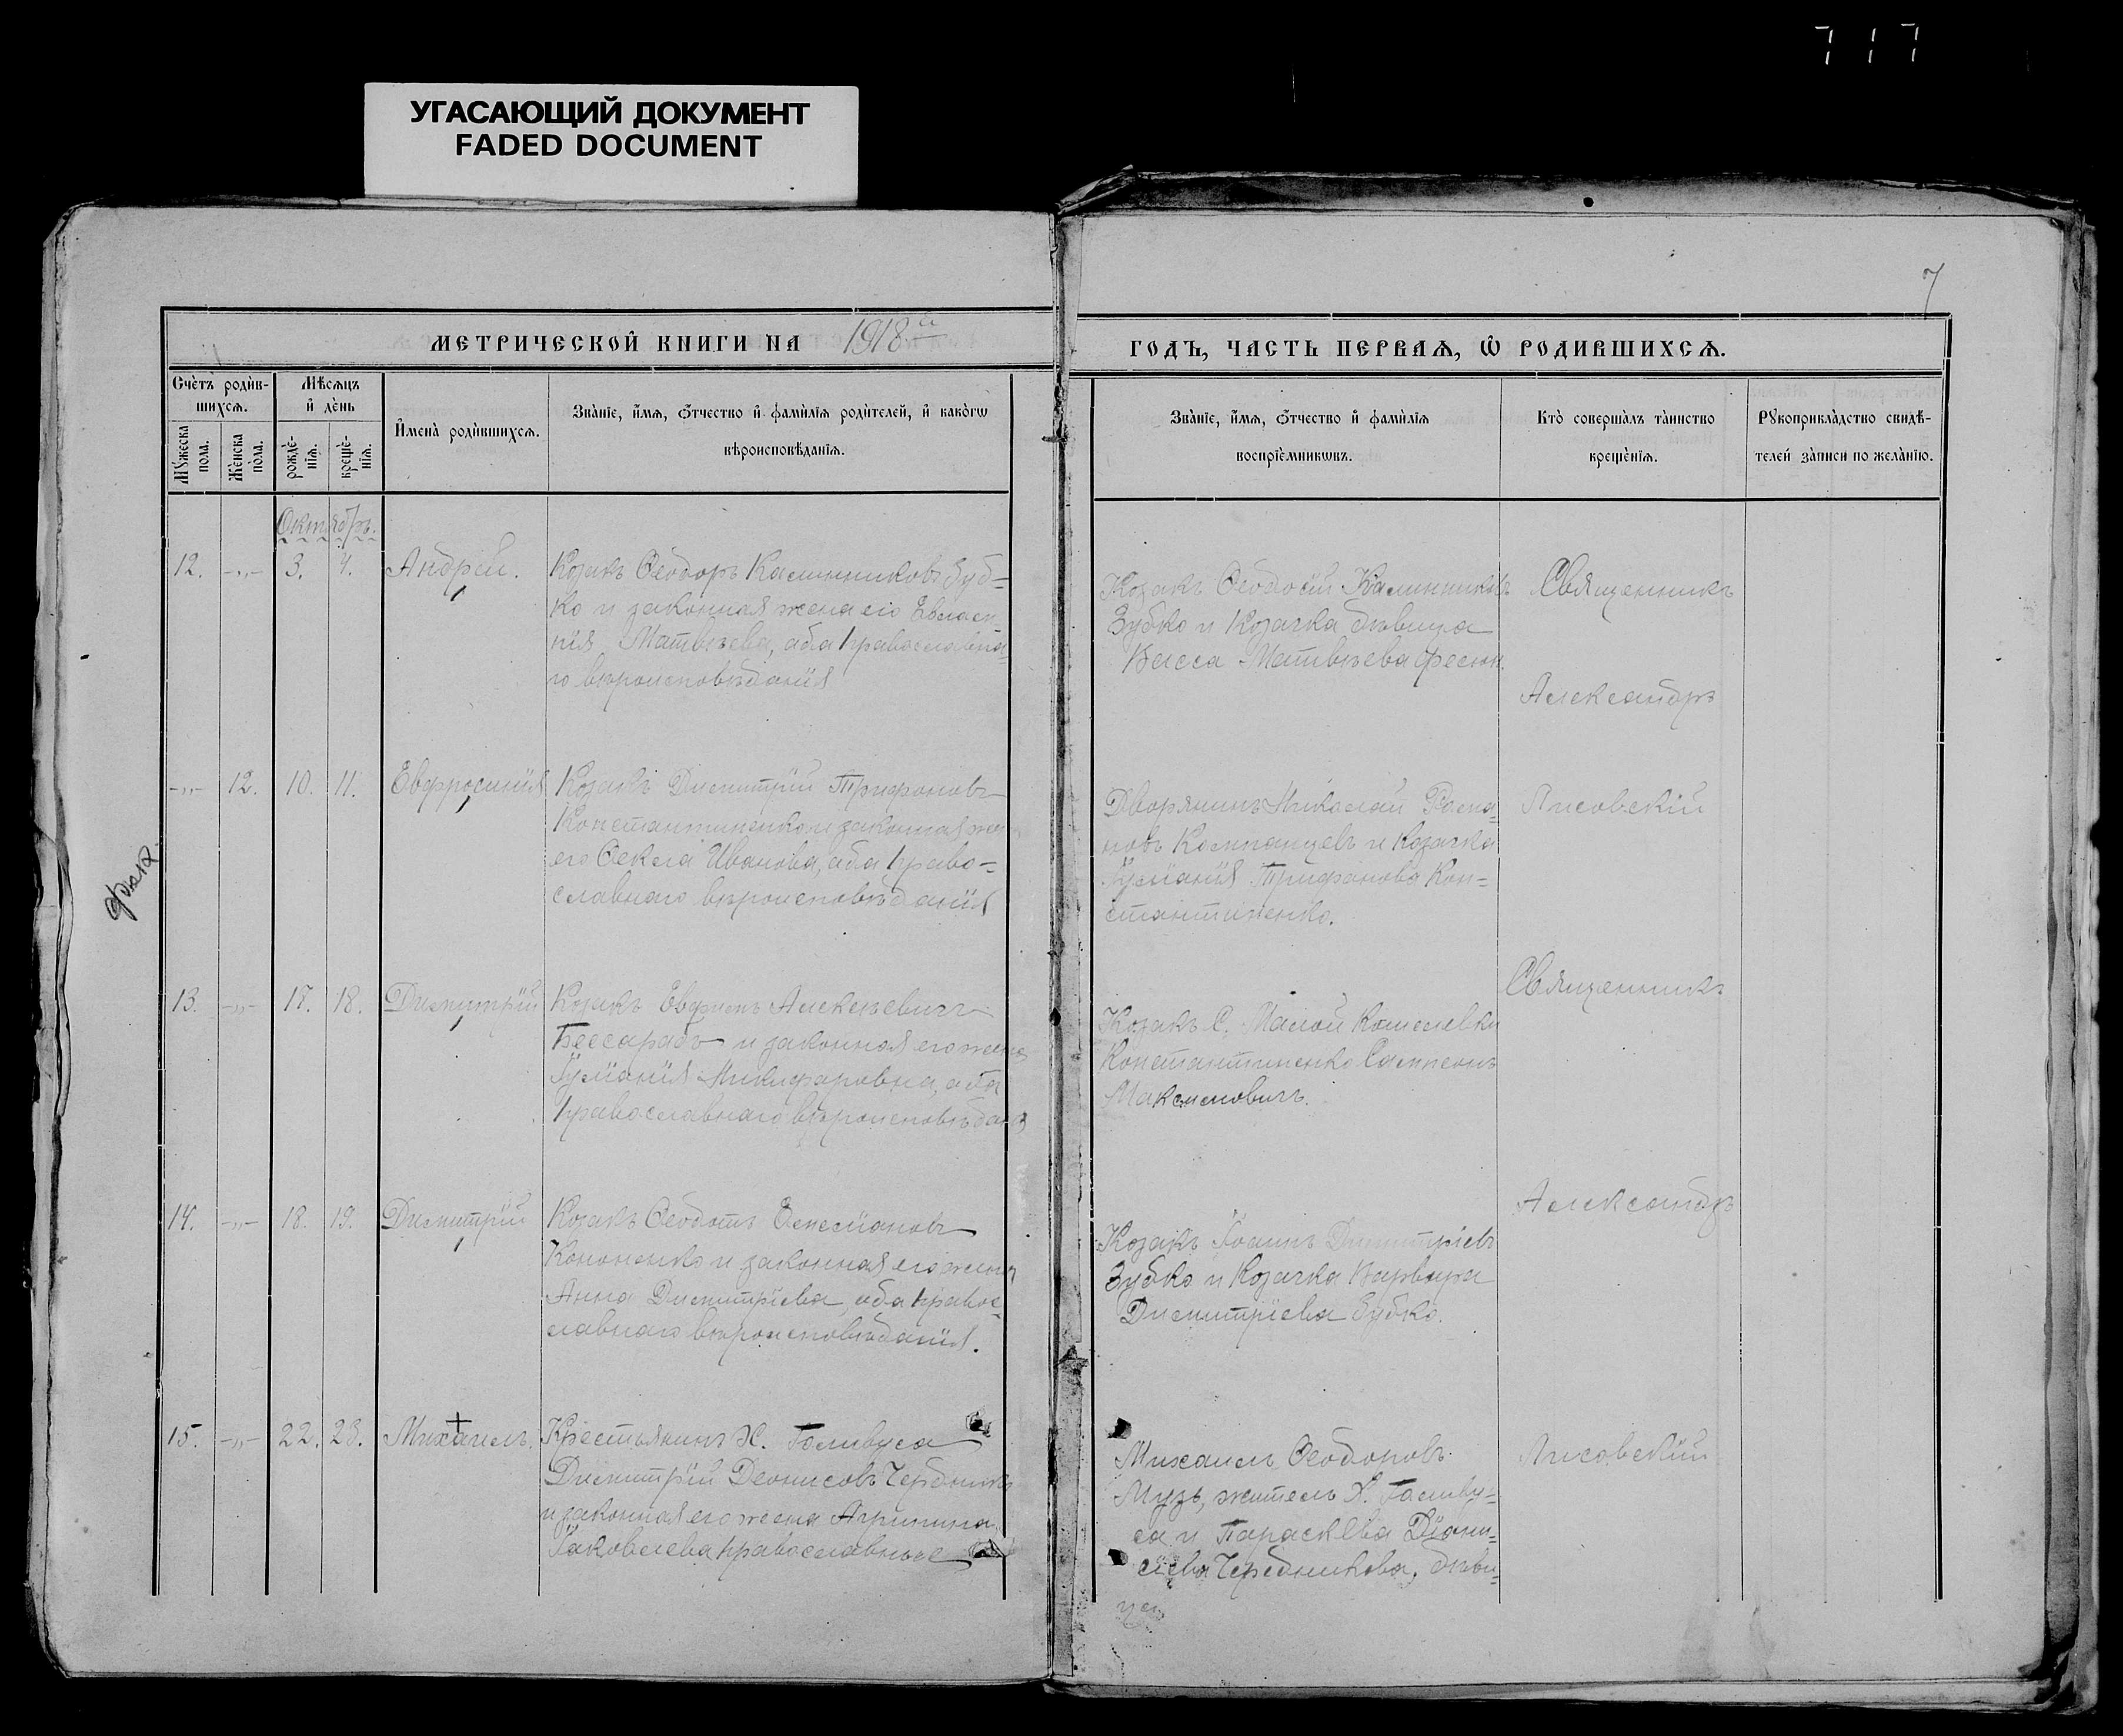 7 1 7
УГАСАЮЩИЙ ДОКУМЕНТ
FADED DOCUMENT
7
МЕТРИЧЕСКОЙ КНИГИ НА 1918й
ГОДЪ, ЧАСТЬ ПЕРВАѦ, Ѽ РОДИВШИХСѦ.
Счётъ родив-
шихсѧ.
Мѣсѧцъ
и день
Мꙋжеска
пола.
Женска
пола.
рожде-
нїѧ.
креще-
нїѧ.
Имена родившихсѧ.
Званїе, имѧ, ѻтчество и фамилїѧ родителей, и какогѡ
вѣроисповѣданїѧ.
Званїе, имѧ, ѻтчество и фамилїѧ
воспрїемникѡвъ.
Кто совершалъ таинство
крещенїѧ.
Рꙋкоприкладство свидѣ-
телей записи по желанїю.
Октябрь.
12. -„- 3. 4. Андрей.
Козакъ Ѳеодоръ Калинниковъ Зуб-
ко и законная жена его Евлам-
пія Матвѣева, оба православна-
го вѣроисповѣданія
Козакъ Ѳеодосій Калинниковъ
Зубко и Козачка дѣвица
Васса Матвѣева
Священникъ
Александръ
-„- 12. 10. 11. Евфросинія
Козакъ Димитрій Трифоновъ
Константиненко и законная же
его Ѳекла Иванова, оба право-
славнаго вѣроисповѣданія
Дворянинъ Николай
Компанцевъ и Козачка
Іуліанія Трифонова Кон-
стантиненко.
Лисовскій
13. -„- 17. 18. Димитрій
Козакъ Евфимъ Алексѣевичъ
Бессарабъ и законная его жена
Іуліанія Никифоровна, оба
православнаго
Козакъ С. Малой Кошелевки
Константиненко Сампсонъ
Максимовичъ.
Священникъ
14. -„- 18. 19. Димитрій
Козакъ Ѳеодотъ
Кононенко и законная его жена
Анна Димитріева, оба право-
славнаго вѣроисповѣданія.
Козакъ Іоаннъ Димитріевъ
Зубко и Козачка Варвара
Димитріева Зубко.
Александръ
15. -„- 22. 28. Михаилъ.
Крестьянинъ Х. Галивуса
Димитрій Деонисовъ
и законная его жена Агрипина
Іаковлева православные
Михаилъ Ѳеодоровъ
Музь, житель Х. Галиву-
са и Параскева Діони-
сіева Чередникова, дѣви-
ца.
Лисовскій